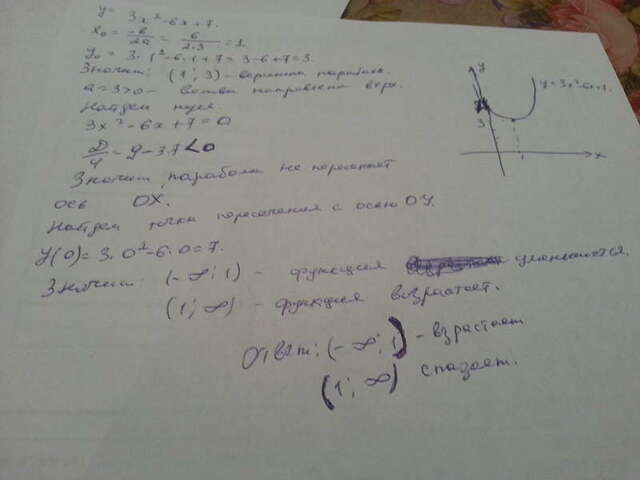 y = 3x²-6x+7.
x₀ = -b/2a = 6/2·3 = 1.
y₀ = 3·1²-6·1+7 = 3-6+7=3.
Значит: (1; 3) - вершина параболы.
a = 3>0 - ветви направлены вверх.
Найдем нули.
3x²-6x+7=0
D/4 = 9-3·7<0
Значит, парабола не пересекает
ось OX.
Найдем точки пересечения с осью OY.
y(0) = 3·0²-6·0=7.
Значит: (-∞; 1) - функция уменьшается.
(1; ∞) - функция возрастает.
Ответ: (-∞; 1) - взрастает
(1; ∞) спадает.
y
3
1
x